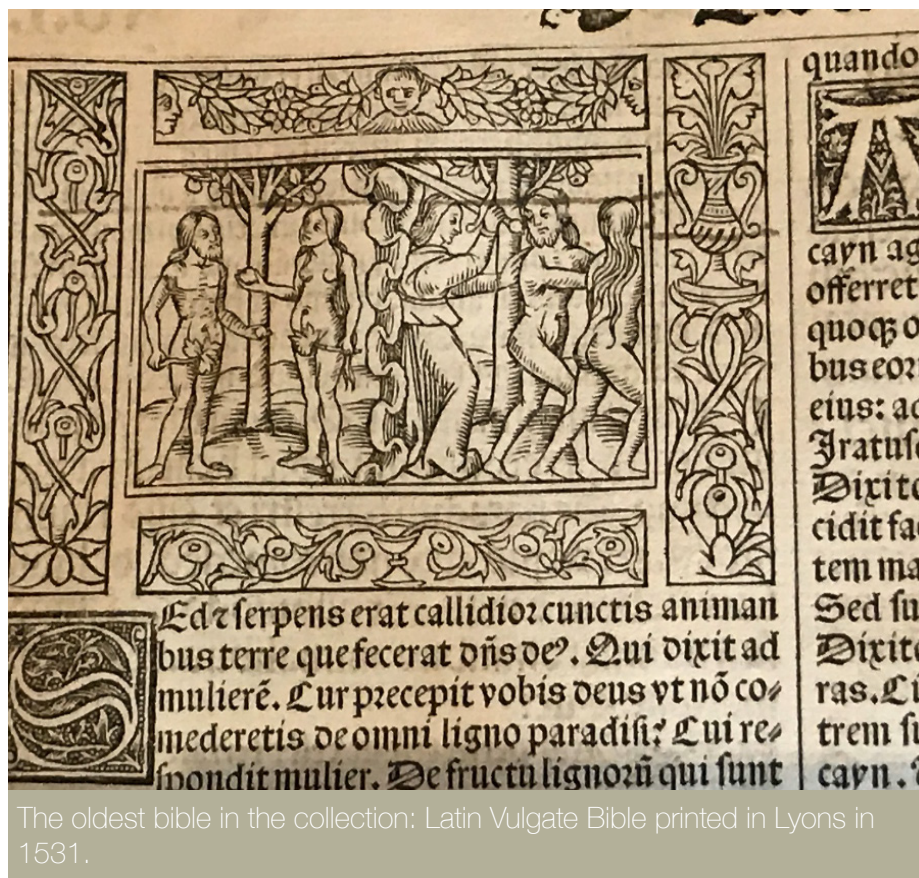 SEd ⁊ ſerpens erat callidioꝛ cunctis animan
bus terre que fecerat dñs deꝰ. Qui dixit ad
mulierē. Cur pꝛecepit vobis deus vt nō co⸗
mederetis de omni ligno paradiſi? Cui re⸗
ſpondit mulier. De fructu lignoꝛū qui ſunt
quando
cayn
offerret
quoqꝫ
bus eoꝛ
eius:
Jratuſ
Dixit
cidit fa
tem ma
Sed ſu
Dixit
ras.
trem ſu
cayn.
The oldest bible in the collection: Latin Vulgate Bible printed in Lyons in
1531.